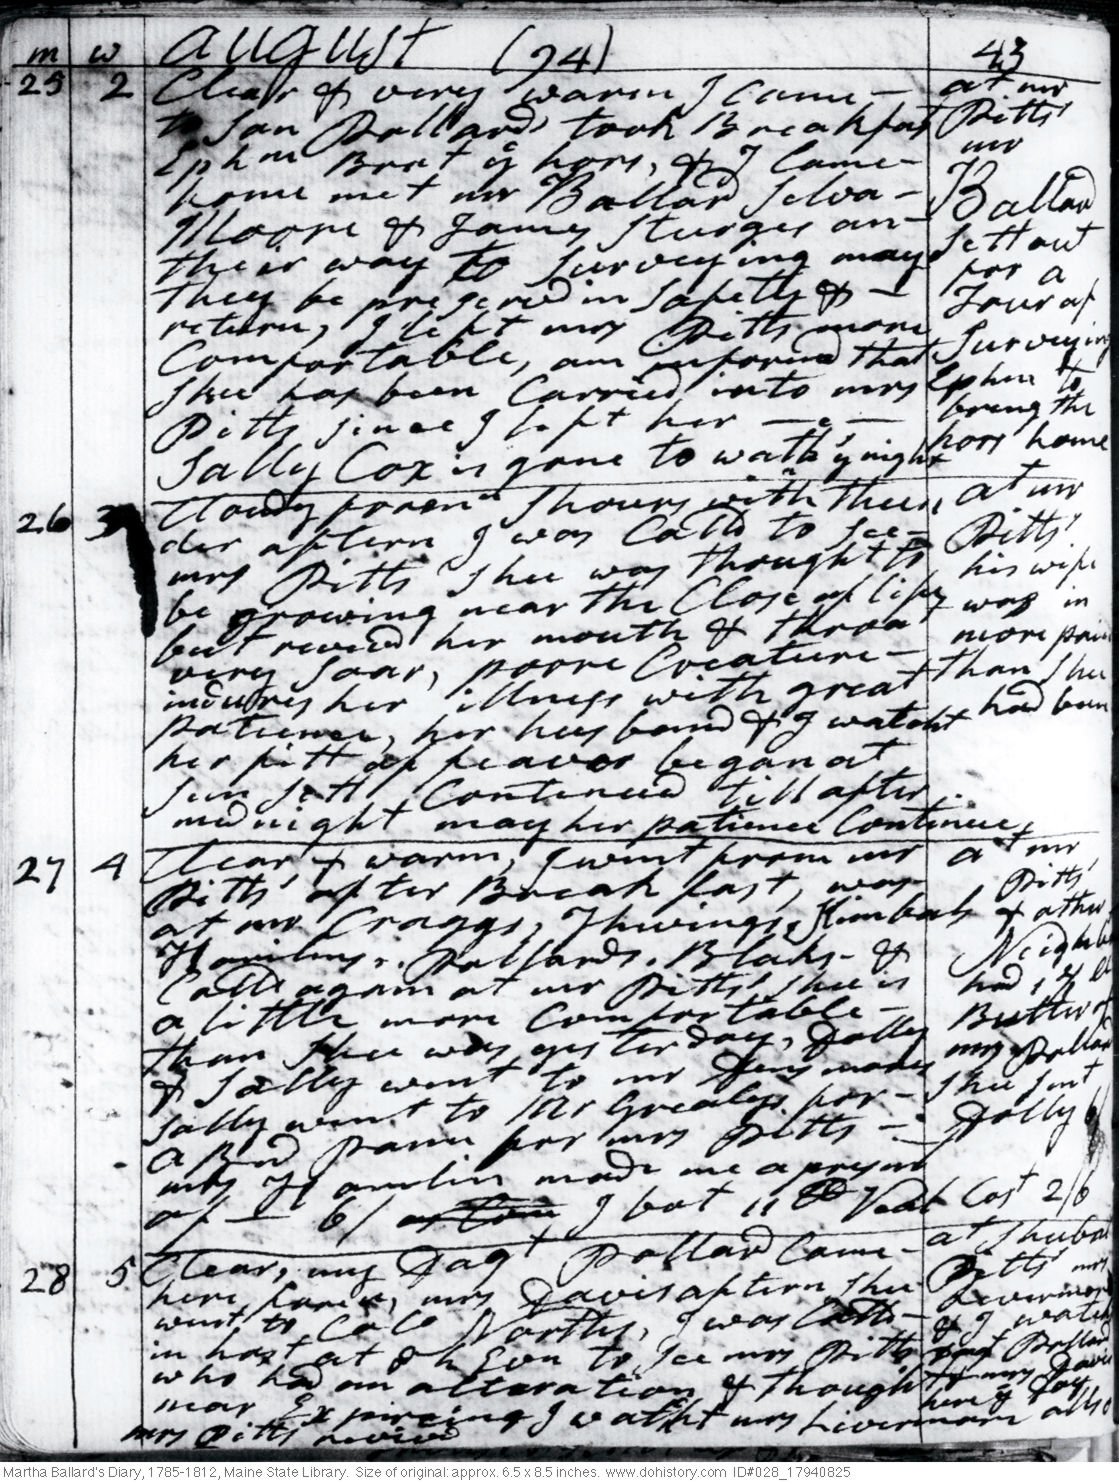 m w August (94) 43
25 2 Clear & very warm I came -
to Son Pollards took Breakfast
Ephm Brot ye hors, & I Came -
home met mr Ballard Selva -
Moore & James Sturges on -
their way to Surveying may
they be preserved in Safetty & -
return, I left mrs Pitts more
Comfortable, am informd that
Shee has been Carried into mrs
Pitts since I left her - -
Sally Cox is gone to watch ye night
at mr
Pitts'
mr
Ballard
sett out
for a
Tour of
Surveying
Ephm
to
bring the
hors home
26 3 Clowdy foren Shours with thun
der aftern I was Calld to See -
mrs Pitts Shee was thought to
be growing near the Close of life
but revivd her mouth & throa
very Soar, poore Creature -
indures her illness with great
patience, her husband & I watcht
her fitt of feavor began at
Sun Sett Continued till after
midnight may her patience Continue
at mr
Pitts'
his wife
was in
more pain
than Shee
had been
27 4 Clear & warm, I went from mr
Pitts' after Break fast, was
at mr Craggs, Thwings, Kimbals
Hamlins, Pollards, Blaks - &
Calld again at mr Pitts' Shee is
a little more Comfortable -
than Shee was yesterday, Dolly
& Sally went to mr Densmores
Sally went to Mr Grealys for -
a Bed pann for mrs Pitts -
mrs Hamlin made me a present
of - 6/ I bot 11 lb Veal Cost 2/6
at mr
Pitts'
& other
Neighb
had 1
Butter of
mrs Pollard
Shee sent
Dolly
28 5 Clear, my Dagt Pollard Came -
here foren, mrs Davis aftern Shee
went to Colo Norths, I was Calld -
in hast at 8 h Evn to See mrs Pitts
who had an alteration & thought
near Expireing I watcht mrs Livermore allso
mrs Pitts revivd
at Shubal
Pitts' mrs
Livermore
& I watch
Dagt Pollard
& mrs Davis
here ye Day
Martha Ballard's Diary, 1785-1812, Maine State Library. Size of original: approx. 6.5 x 8.5 inches. www.dohistory.com ID#028_17940825